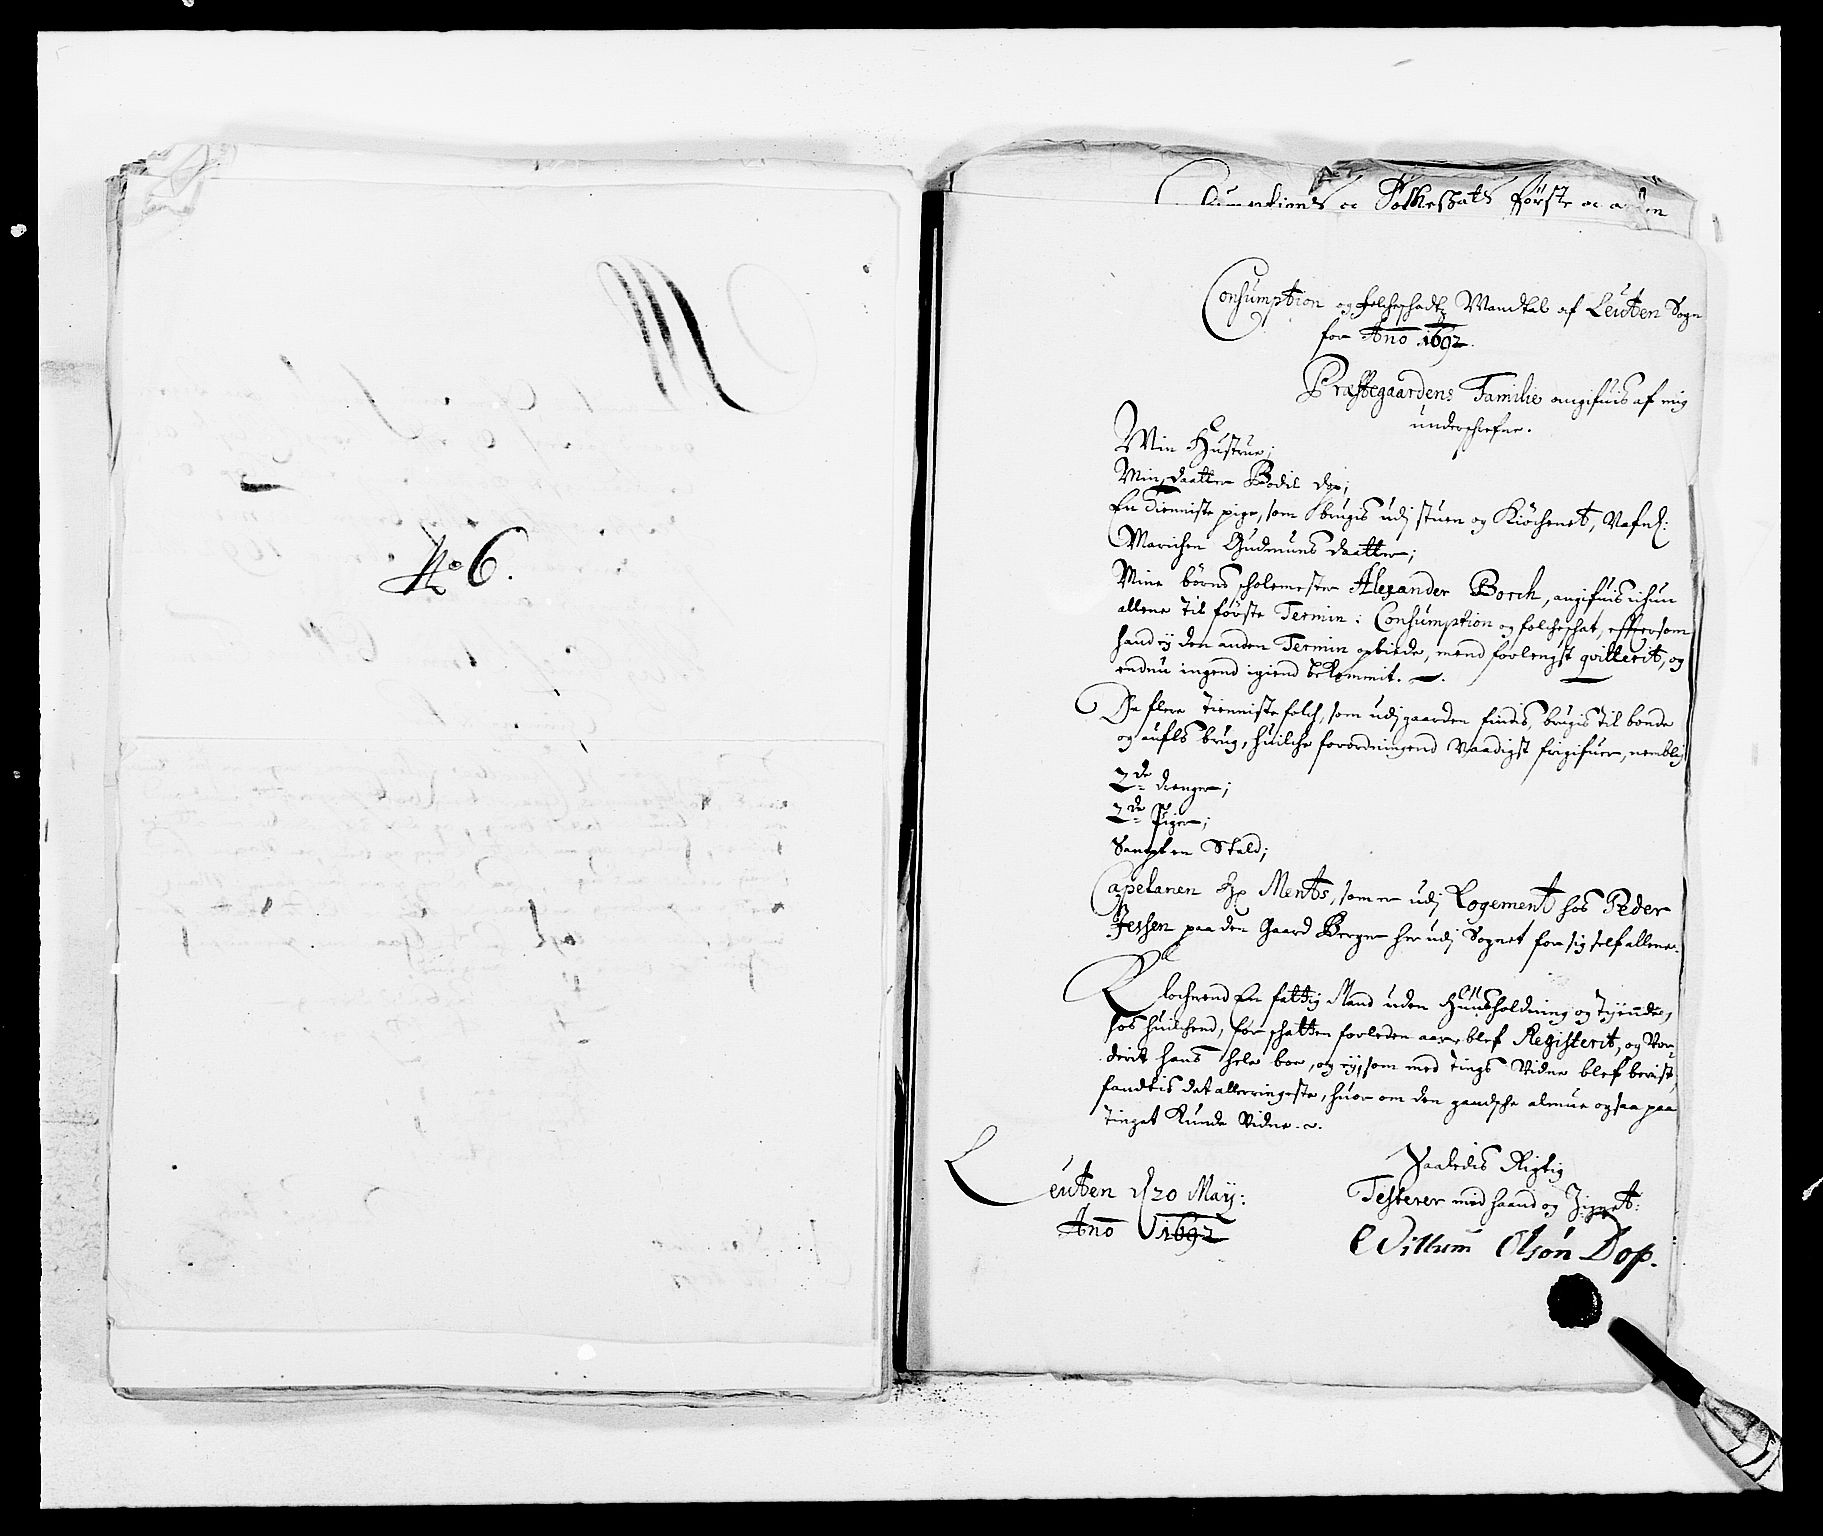 No 6.
Consumptions og Folkeskats første og anden
Consumption og folcheschadtz Mandtal af Leuten Sogn
for Ano 1692.
Præstegaardens Familie angifuis af mig
underschrefne.
Min Hustrue;
Min daatter Bodil Dop;
En Tienniste pige, som brugis udj stuen og Kiöchenet, Nafnl:
Marichen Gudmuns daatter;
Mine börns scholemester Alexander Borch, angifuis ichun
allene til förste Termin i Consumption og folcheschat, effttersom
hand ej den anden Termin opbiede, mend forlengst qvitterit, og
endnu ingend igiend bekommit.
De flere Tienniste folch, som udj gaarden findis, brugis til bonde
og aufls brug, huilche forordningend Naadigst frigifuer, nemblig
2de drenger;
2de Piger;
Sampt en Stald;
Capelanen Hr Ments, som er udj Logement hos Peder
Jessen paa den Gaard Berger her udj Sognet for sig self allene.
Klocherend En fattig Mand uden Huusholdning og Tyende,
hos huilchend, för schatten forleden aar blef Registerit, og Vor-
derit hans hele boe, og ej, som med tings Vidne blef bevist,
fandtis det allerringeste, huor om den gandsche almue ogsaa paa
tinget Kunde Vidne.
Leuten d 20 Maij:
Ano 1692
Saaledis Rigtig
Testerer med haand og Zignet:
Willum Olsön Dop.